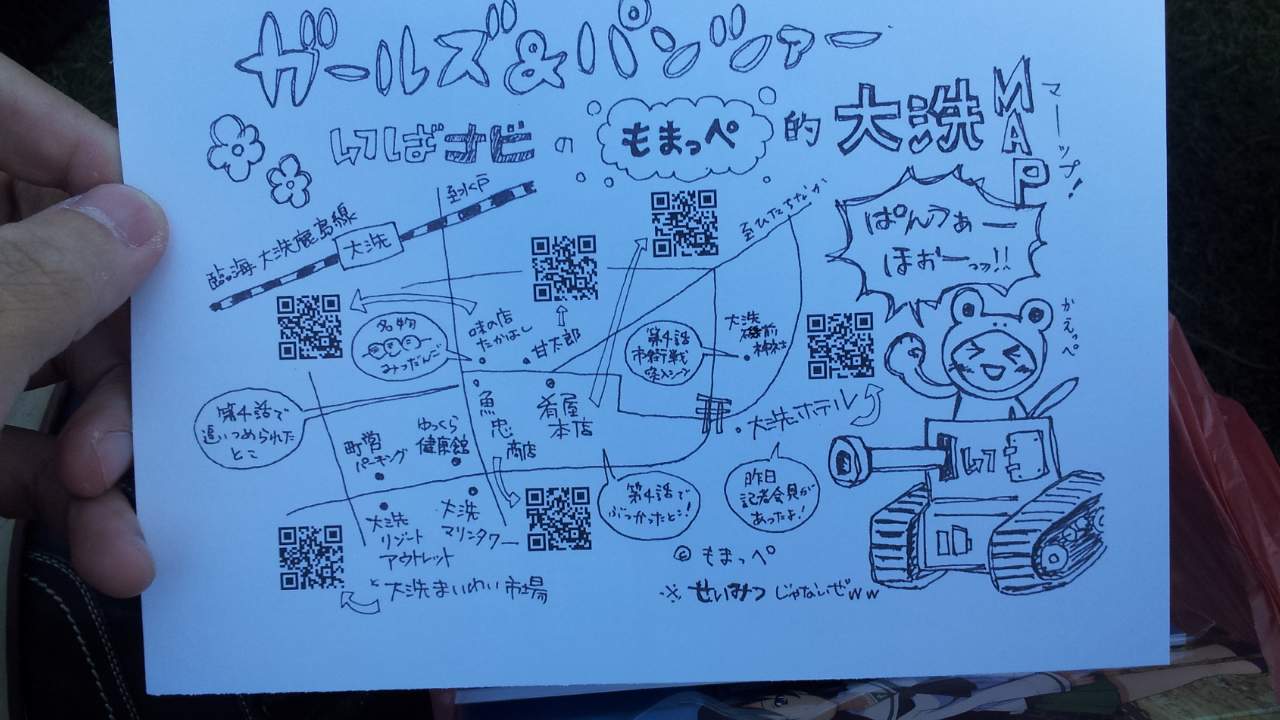 ガールズ&パンツァー
いばナビのもまっぺ的大洗MAP
マーップ!
ぱんつぁー
ほぉーっッ!!
かえっぺ
至水戸
臨海大洗鹿島線
大洗
至ひたちなか
名物
みつだんご
味の店
たかはし
甘太郎
第4話
市街戦
突入シーン
大洗
磯前
神社
第4話で
追いつめられた
とこ
町営
パーキング
ゆっくら
健康館
魚忠
商店
肴屋
本店
大洗ホテル
第4話で
ぶつかったとこ!
昨日
記者会見が
あったよ!
大洗
リゾート
アウトレット
大洗
マリンタワー
と大洗まいわい市場
© もまっぺ
※せいみつじゃないぜww